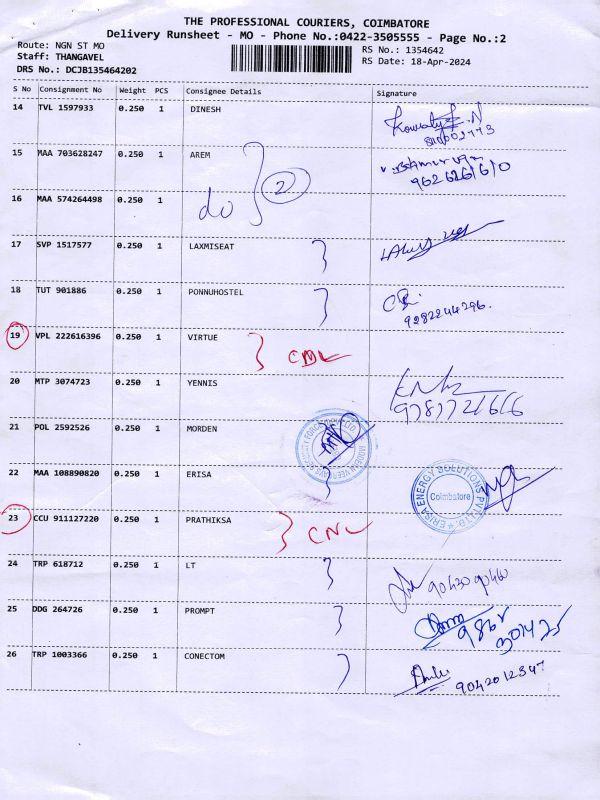 THE PROFESSIONAL COURIERS, COIMBATORE
Delivery Runsheet - MO - Phone No.:0422-3505555 - Page No.:2
Route: NGN ST MO
RS No.: 1354642
Staff: THANGAVEL
RS Date: 18-Apr-2024
DRS No.: DCJB135464202
S No Consignment No Weight PCS Consignee Details Signature
14 TVL 1597933 0.250 1 DINESH
15 MAA 703628247 0.250 1 AREM
9626261610
do 2
16 MAA 574264498 0.250 1
17 SVP 1517577 0.250 1 LAXMISEAT
18 TUT 901886 0.250 1 PONNUHOSTEL
9282244296.
19 VPL 222616396 0.250 1 VIRTUE
20 MTP 3074723 0.250 1 YENNIS
9787721616
21 POL 2592526 0.250 1 MORDEN
22 MAA 108890820 0.250 1 ERISA
ERISA ENERGY SOLUTIONS PVT.LTD.
Coimbatore
23 CCU 911127220 0.250 1 PRATHIKSA
24 TRP 618712 0.250 1 LT
90430 90460
25 DDG 264726 0.250 1 PROMPT
26 TRP 1003366 0.250 1 CONECTOM
9042012347